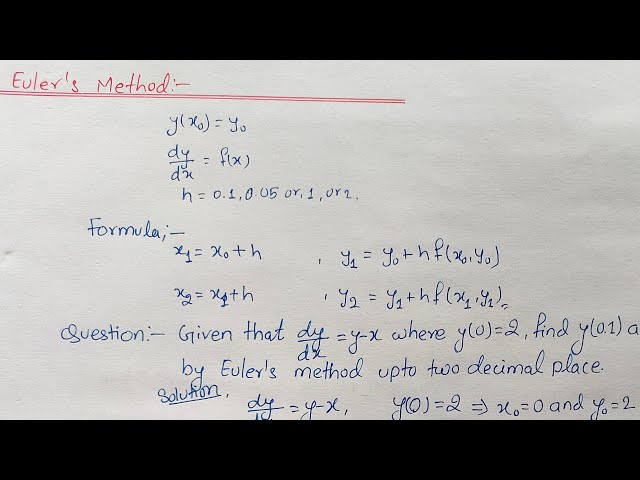 Euler's Method:-
y(x₀) = y₀
dy/dx = f(x)
h = 0.1, 0.05 or, 1, or 2.
Formula;-
x₁ = x₀ + h , y₁ = y₀ + h f(x₀, y₀)
x₂ = x₁ + h , y₂ = y₁ + h f(x₁, y₁)
Question:- Given that dy/dx = y-x where y(0)=2, find y(0.1) a
by Euler's method upto two decimal place.
Solution,
dy/dx = y-x, y(0)=2 ⇒ x₀=0 and y₀=2